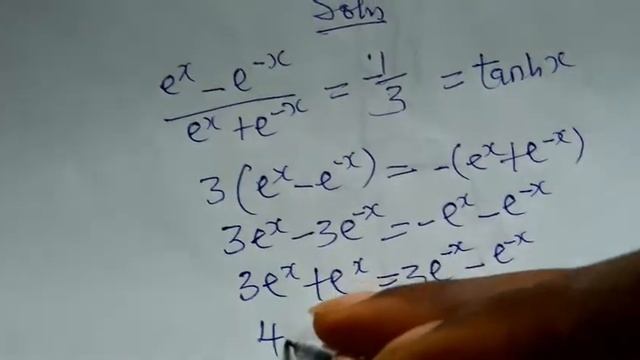 Soln
e^x - e^-x / e^x + e^-x = -1/3 = tanhx
3(e^x - e^-x) = -(e^x + e^-x)
3e^x - 3e^-x = -e^x - e^-x
3e^x + e^x = 3e^-x - e^-x
4